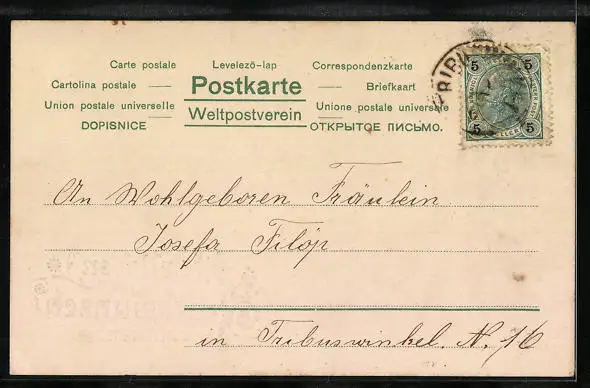 Carte postale Levelező-lap Correspondenzkarte
Cartolina postale — Postkarte — Briefkaart
Union postale universelle Weltpostverein Unione postale universale
DOPISNICE — — ОТКРЫТОЕ ПИСЬМО.
5 5
5 5
An Wohlgeboren Fräulein
Josefa Filöp
in Tribuswinkel. N. 16